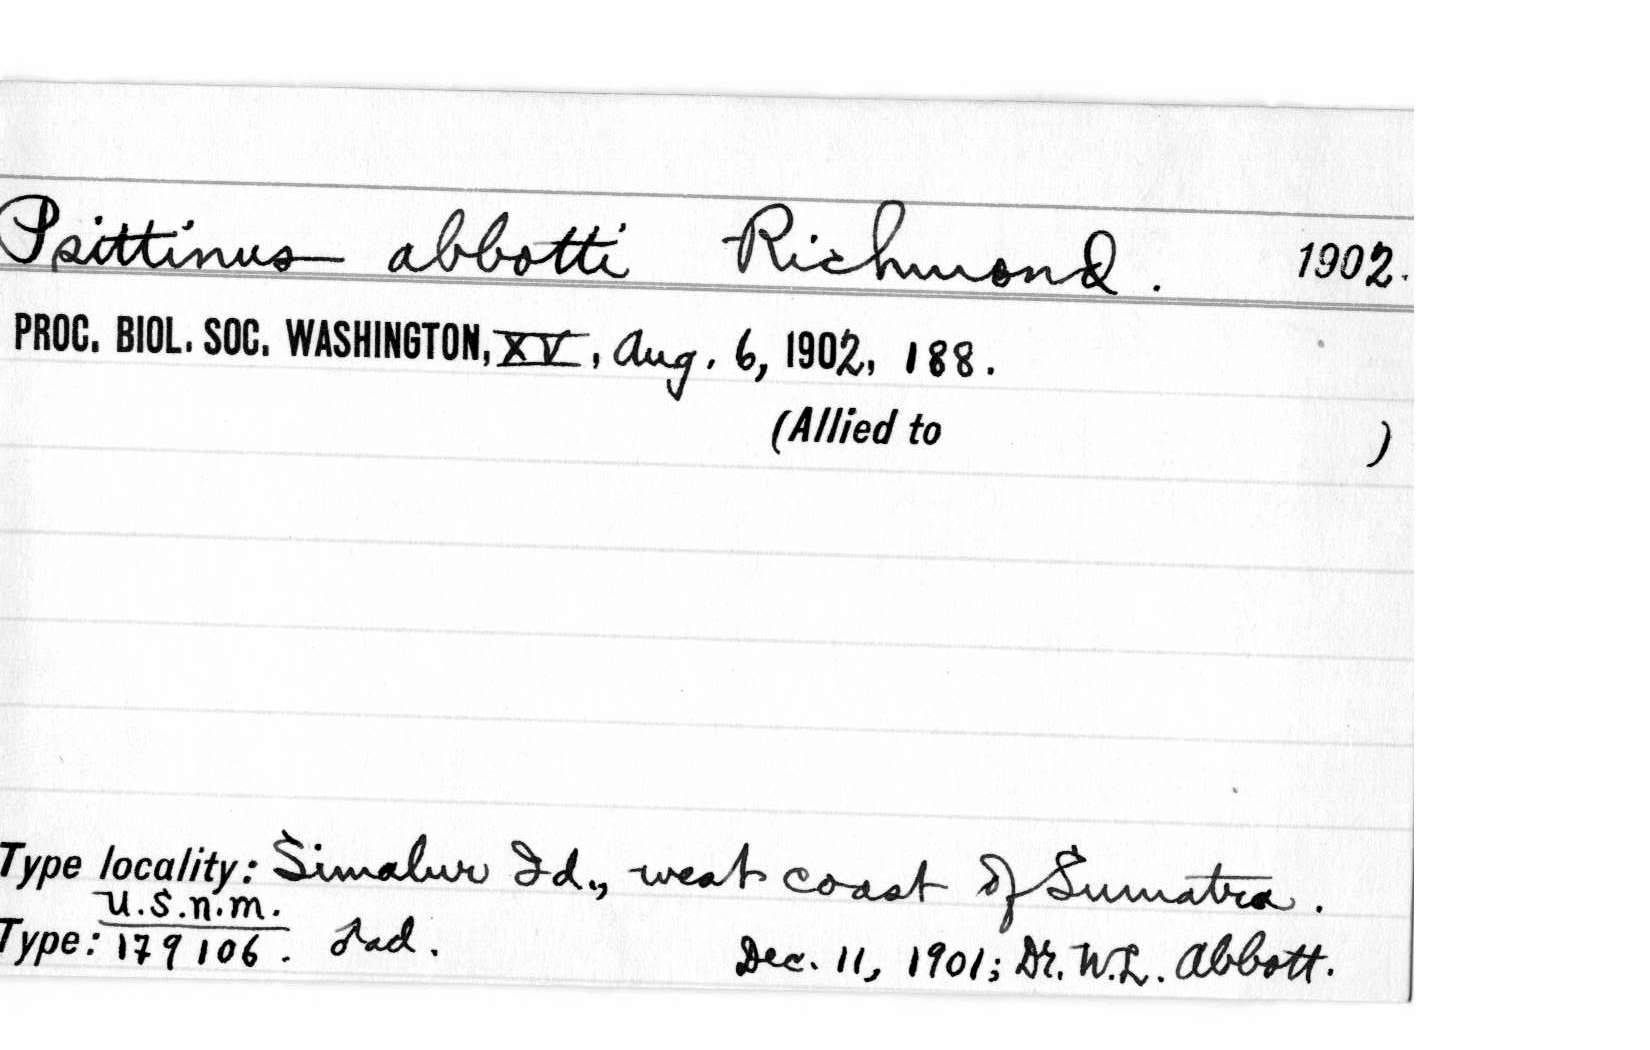 Psittinus abbotti Richmond. 1902.
PROC. BIOL. SOC. WASHINGTON, XV, Aug. 6, 1902, 188.
(Allied to )
Type locality: Simalur Id., west coast of Sumatra.
U.S.N.M.
Type: 179106. ad.
Dec. 11, 1901; Dr. W.L. Abbott.